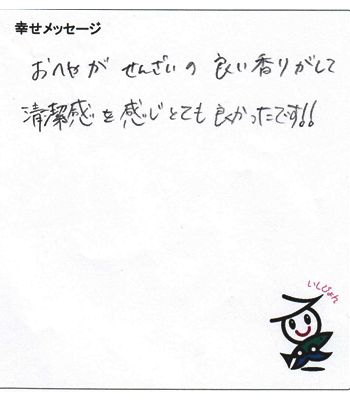 幸せメッセージ
おへやが せんざいの 良い香りがして
清潔感を感じとても良かったです!!
いしぴょん